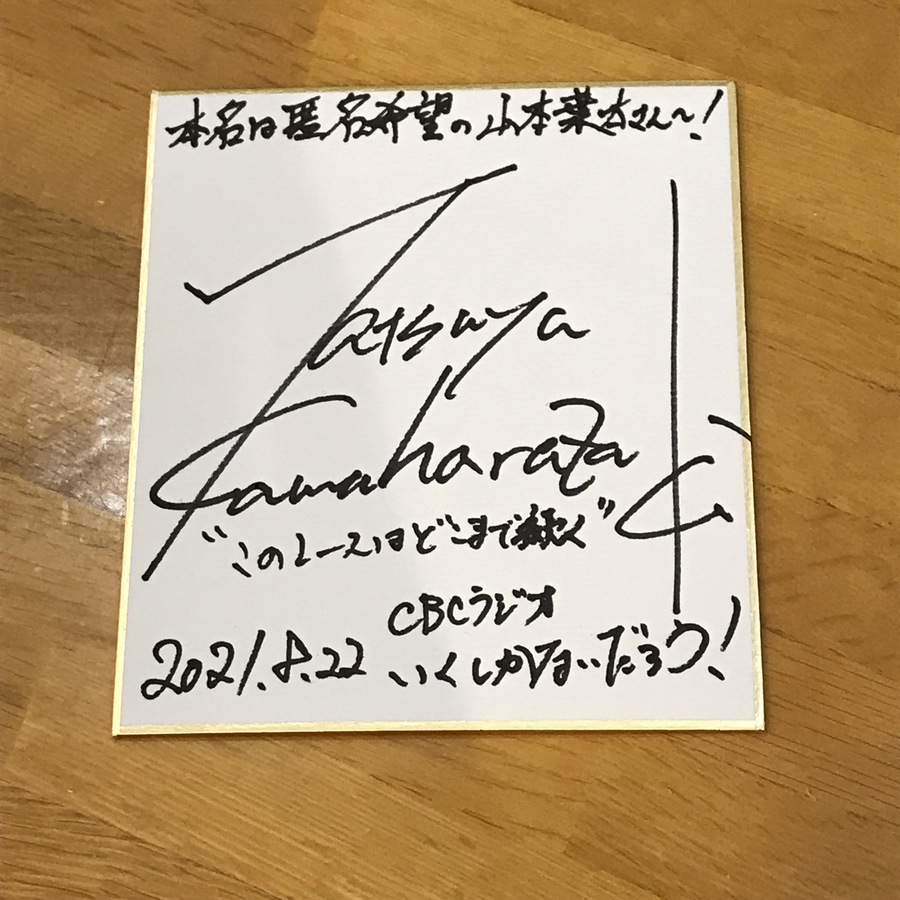 本名は匿名希望の山本葉吉さん〜!
Tatsuya
Kamaharaza
"このレースはどこまで続く"
CBCラジオ
2021.8.22 いくしかないだろう!